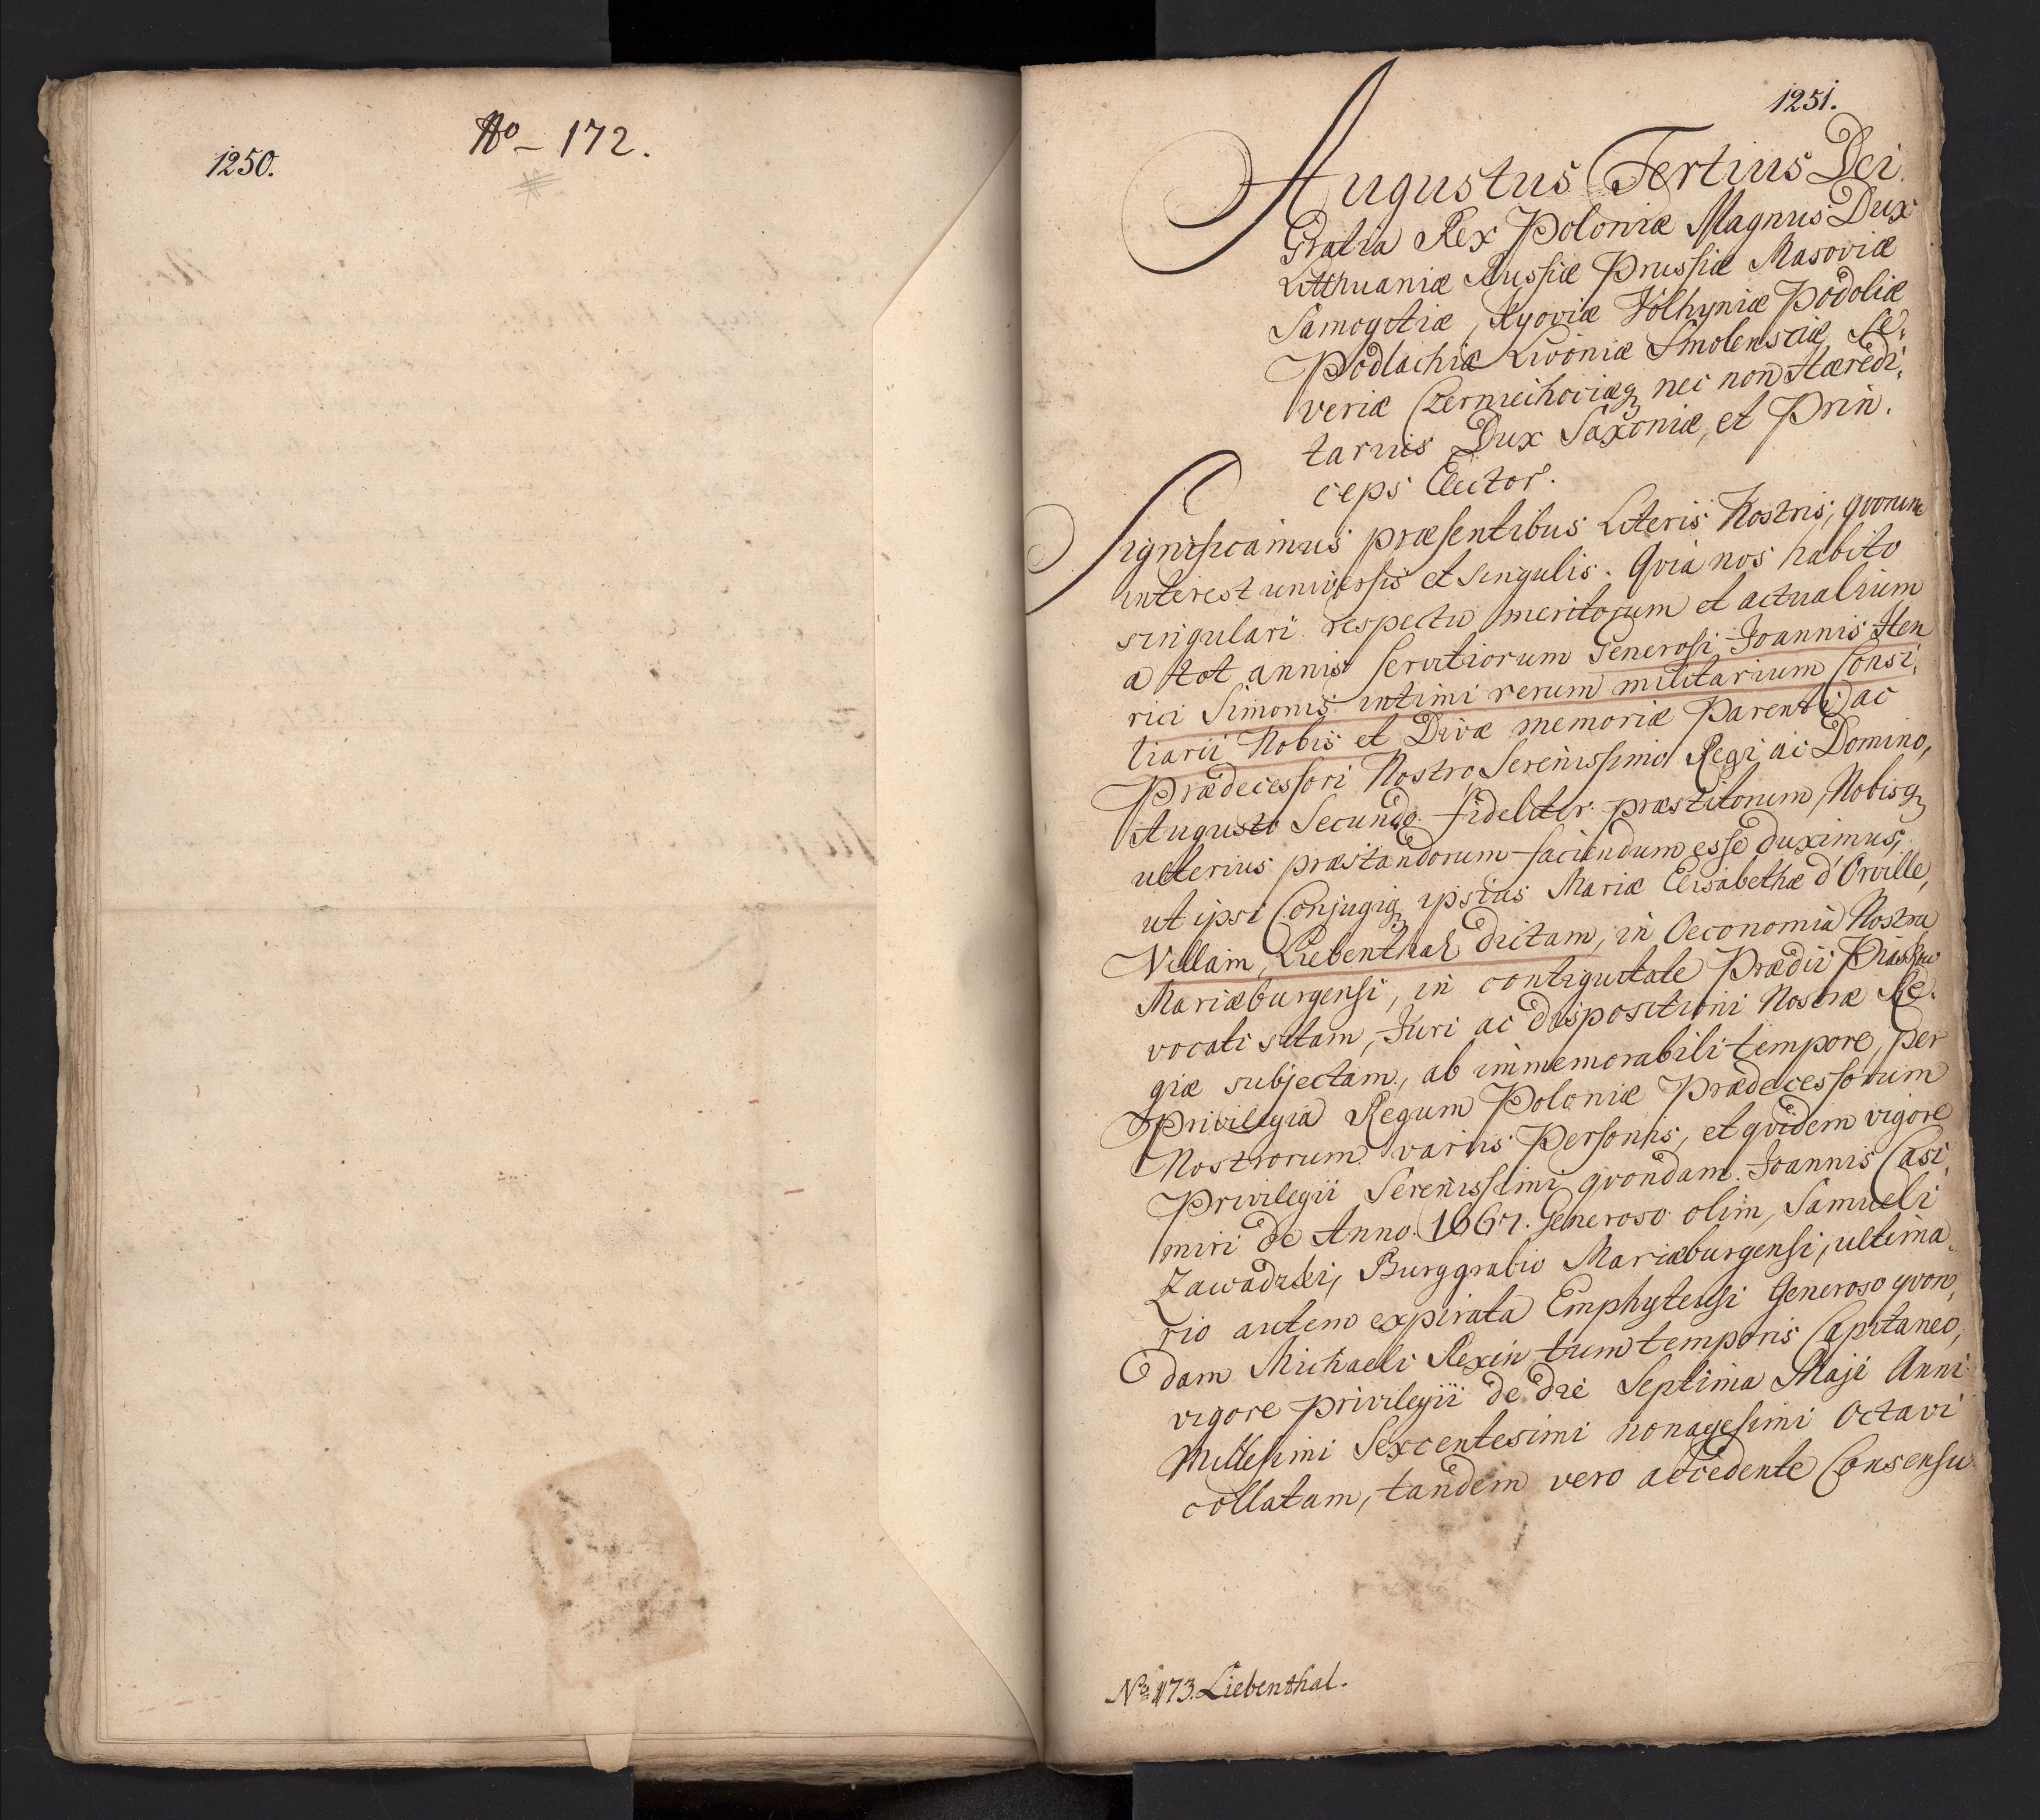 1250.
No – 172.
1251.
Augustus Tertius Dei
Gratia Rex Poloniæ Magnus Dux
Litthuaniæ Russiæ Prussiæ Masoviæ
Samogitiæ, Kyoviæ Volhyniæ Podoliæ
Podlachiæ Livoniæ Smolensciæ Se:
veriæ Czerniechoviæq nec non Hæredi:
tarius Dux Saxoniæ, et Prin.
ceps Elector.
Significamus præsentibus Literis Nostris, qvorum
interest universis et singulis. Qvia nos habito
singulari respectu meritorum et actualium
a tot annis servitiorum Generosi Joannis Hen
rici Simonis intimi rerum militarium Consi:
liarii Nobis et Divæ memoriæ Parenti ac
Prædecessori Nostro Serenissimo Regi ac Domino,
Augusto Secundo fideliter præstitorum, Nobisq
ulterius præstandorum faciundum esse duximus,
ut ipsi Conjugiq ipsius Mariæ Elisabethæ d'Orville,
Villam, Liebenthal dictam, in Oeconomia Nostra
Mariæburgensi, in contiguitate Prædii
vocati sitam, Juri ac dispositioni Nostræ Re.
giæ subjectam, ab immemorabili tempore, per
Privilegia Regum Poloniæ Prædecessorum
Nostrorum variis Personis, et qvidem vigore
Privilegii Serenissimi qvondam Joannis Casi:
miri de Anno 1667. Generoso olim, Samueli
Zawadzki, Burggrabio Mariæburgensi, ultima:
rio autem expirata Emphyteusi Generoso qvon,
dam Michaeli Rexin tum temporis Capitaneo,
vigore privilegii de die Septima Maji Anni
Millesimi Sexcentesimi nonagesimi Octavi
collatam, tandem vero accedente Consensu
No 173. Liebenthal.